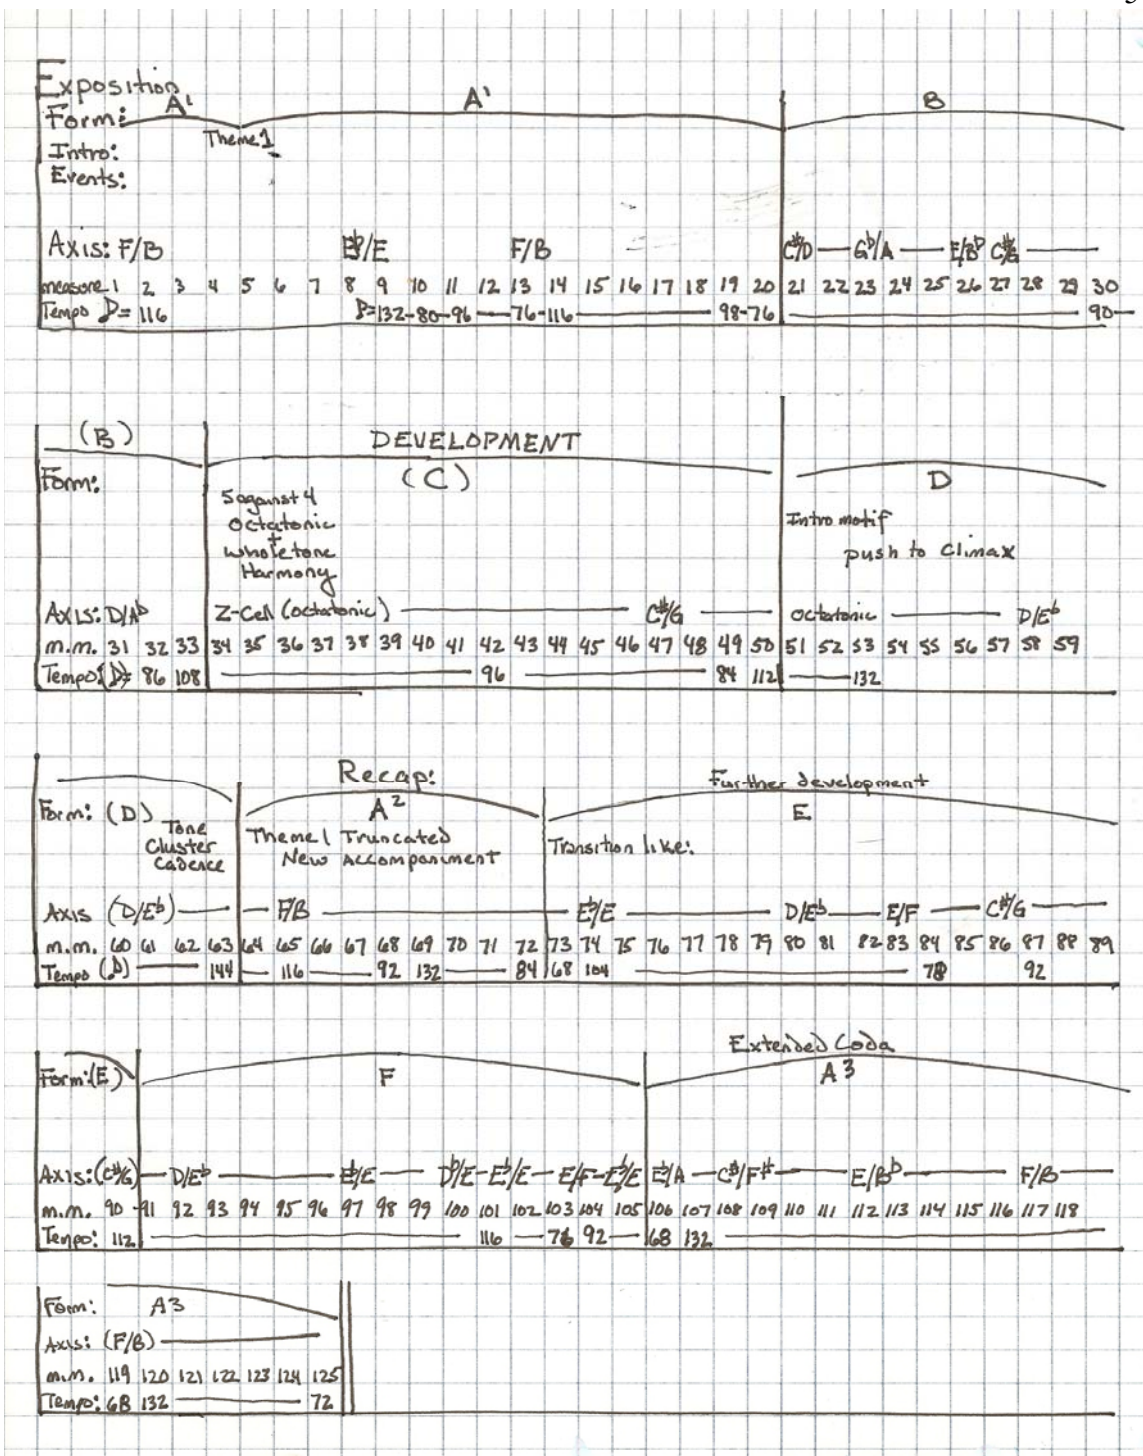 Exposition
A' A' B
Form:
Theme 1
Intro:
Events:
Axis: F/B E♭/E F/B C#/D — G♭/A — E/B♭ C#/G —
measure 1 2 3 4 5 6 7 8 9 10 11 12 13 14 15 16 17 18 19 20 21 22 23 24 25 26 27 28 29 30
Tempo ♪= 116 ♪=132-80-96 — 76-116 — 98-76 — 90 —
(B) DEVELOPMENT
Form: (C) D
5 against 4
Octatonic
+
Wholetone
Harmony
Intro motif
push to Climax
Axis: D/A♭ Z-Cell (octatonic) — C#/G — octatonic — D/E♭
m.m. 31 32 33 34 35 36 37 38 39 40 41 42 43 44 45 46 47 48 49 50 51 52 53 54 55 56 57 58 59
Tempo: (♪)= 86 108 — 96 — 84 112 — 132
Recap: Further development
Form: (D) A2 E
Tone
Cluster
Cadence
Theme 1 Truncated
New Accompaniment
Transition like:
Axis (D/E♭) — F/B — E♭/E — D/E♭ — E/F — C#/G —
m.m. 60 61 62 63 64 65 66 67 68 69 70 71 72 73 74 75 76 77 78 79 80 81 82 83 84 85 86 87 88 89
Tempo (♪) — 144 — 116 — 92 132 — 84 68 104 — 78 92
Extended Coda
Form: (E) F A3
Axis: (C#/G) — D/E♭ — E♭/E — D♭/E — E♭/E — E/F — E♭/E E♭/A — C#/F# — E/B♭ — F/B —
m.m. 90 91 92 93 94 95 96 97 98 99 100 101 102 103 104 105 106 107 108 109 110 111 112 113 114 115 116 117 118
Tempo: 112 — 116 — 76 92 — 68 132 —
Form: A3
Axis: (F/B) —
m.m. 119 120 121 122 123 124 125
Tempo: 68 132 — 72